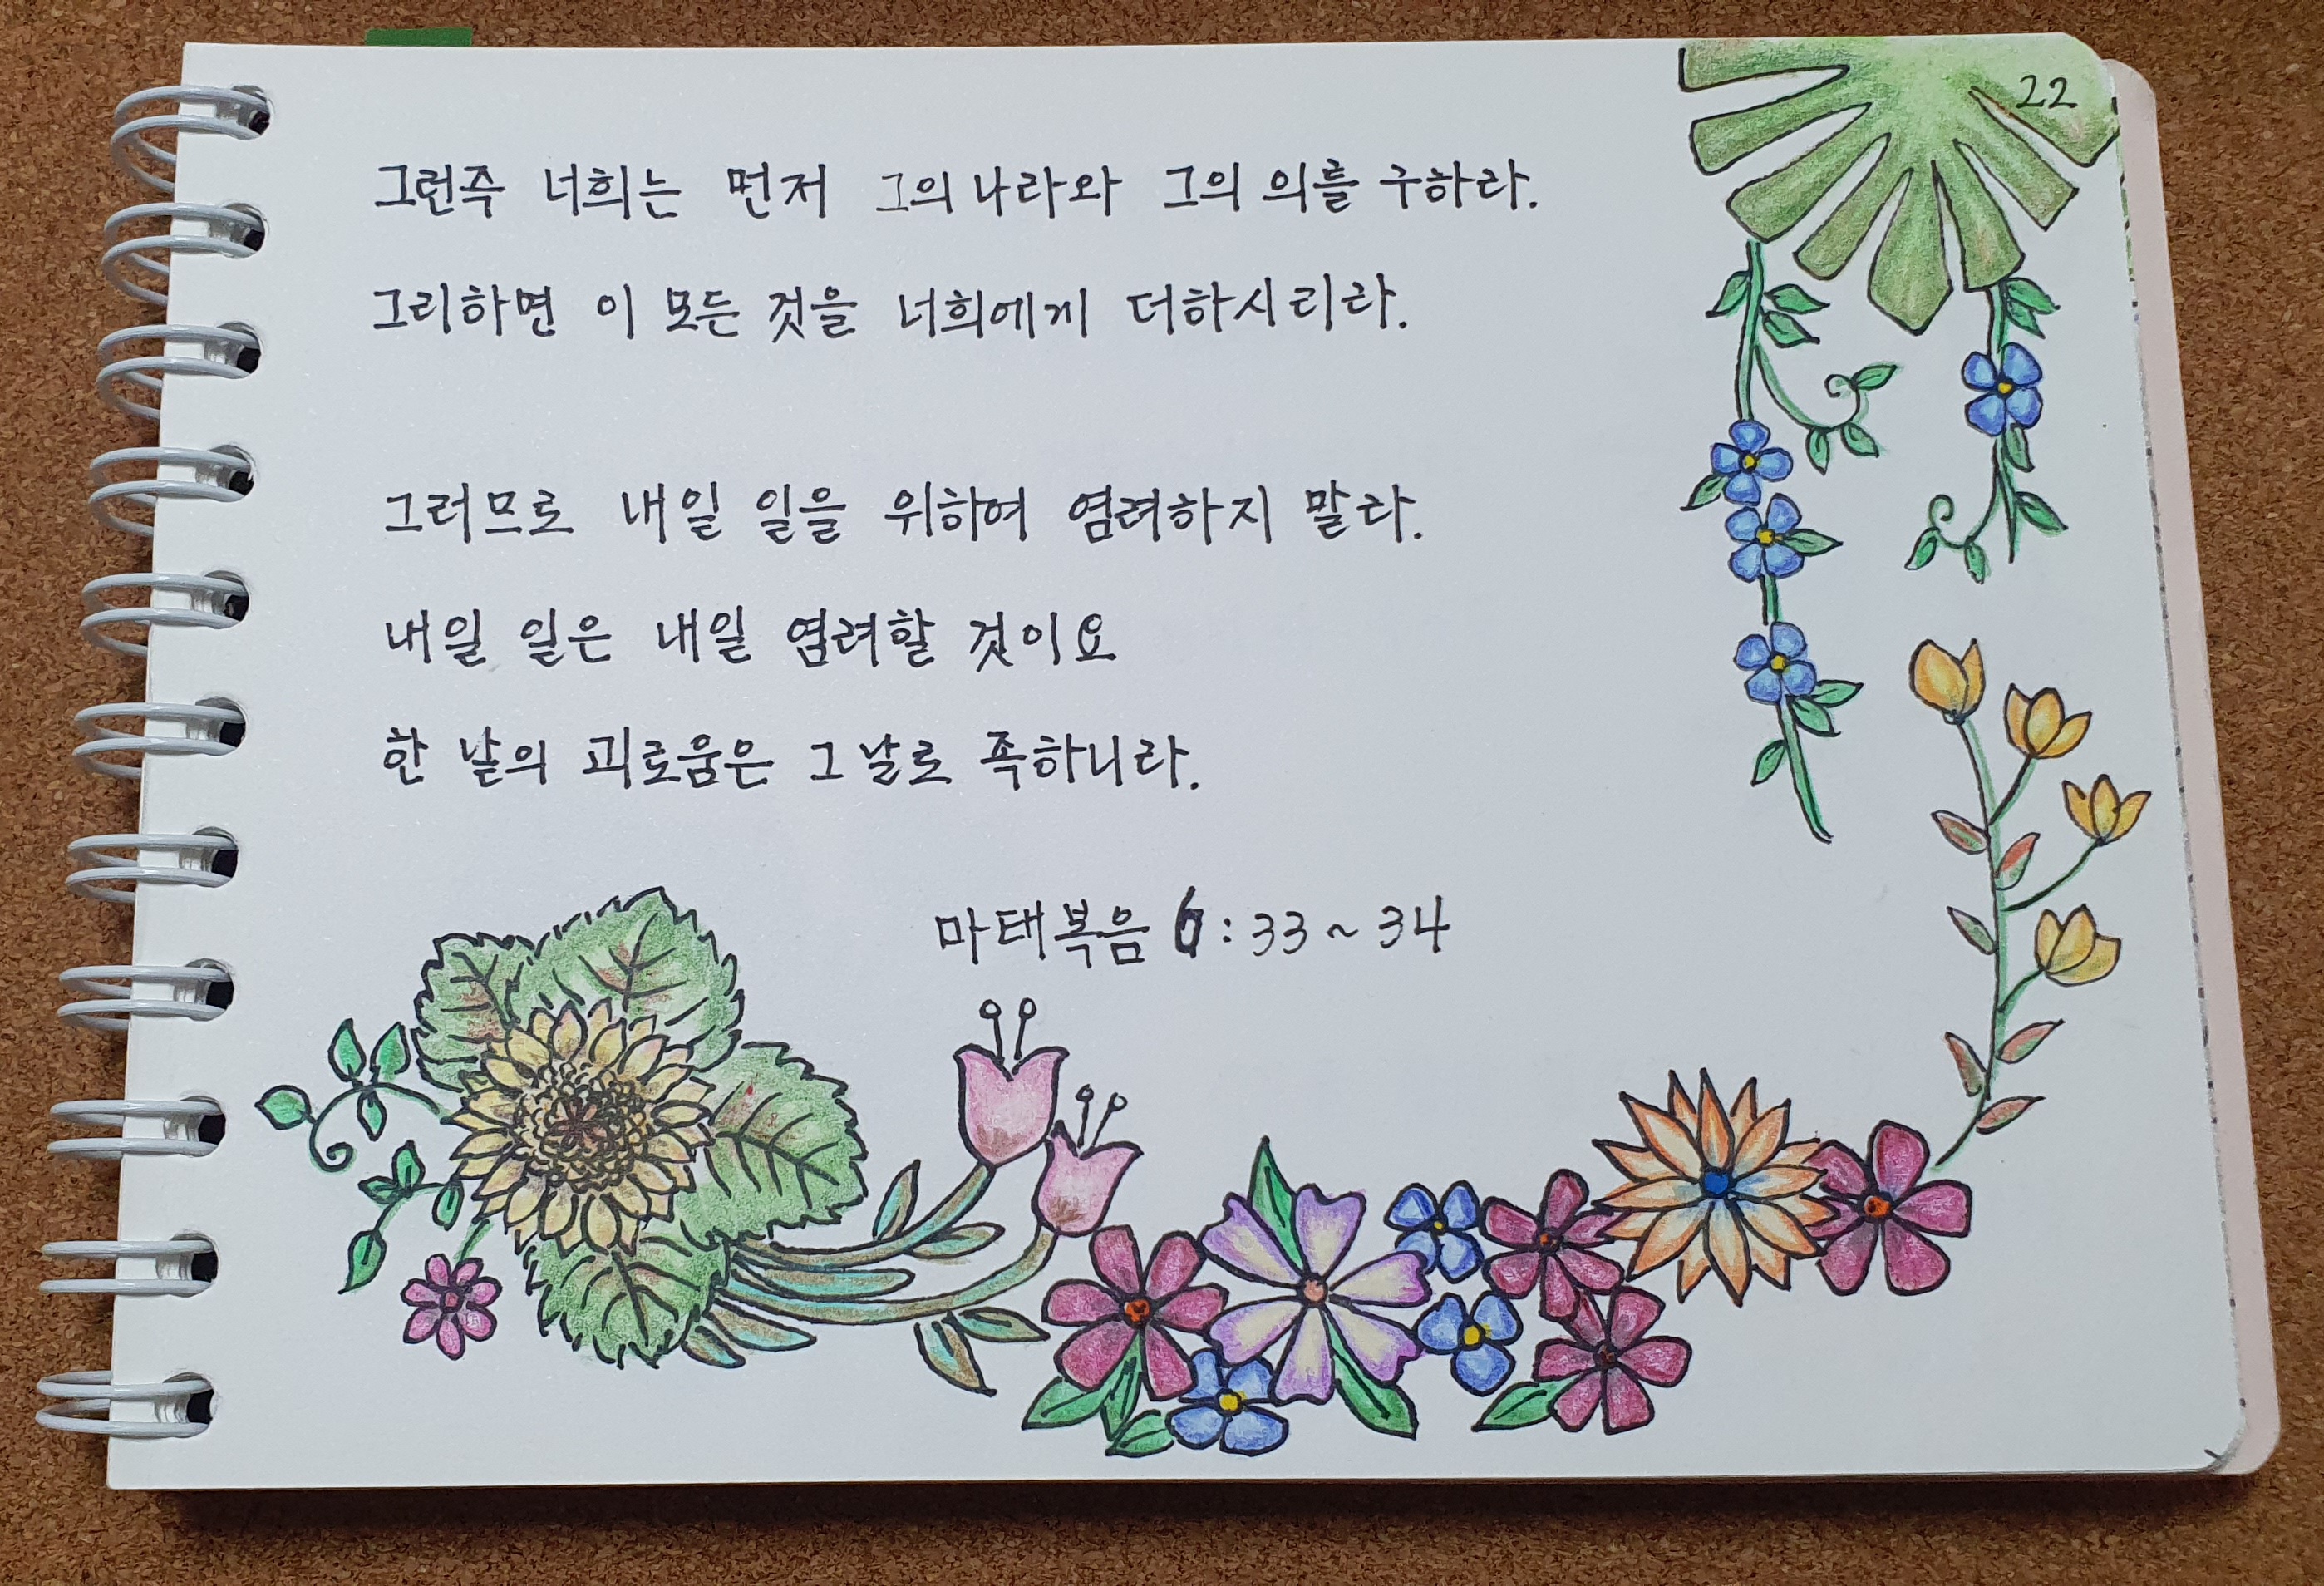 22
그런즉 너희는 먼저 그의 나라와 그의 의를 구하라.
그리하면 이 모든 것을 너희에게 더하시리라.
그러므로 내일 일을 위하여 염려하지 말라.
내일 일은 내일 염려할 것이요
한 날의 괴로움은 그 날로 족하니라.
마태복음 6:33~34